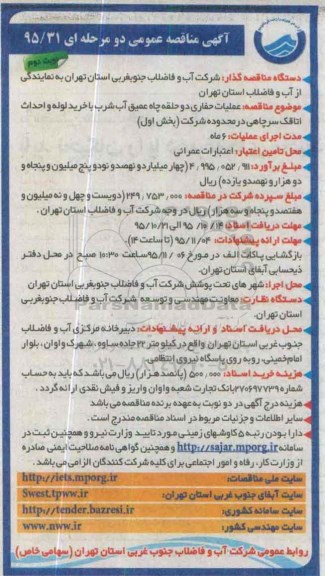 آگهی مناقصه عمومی دو مرحله ای ۹۵/۳۱
نوبت دوم
دستگاه مناقصه گذار: شرکت آب و فاضلاب جنوبغربی استان تهران به نمایندگی
از آب و فاضلاب استان تهران
موضوع مناقصه: عملیات حفاری دو حلقه چاه عمیق آب شرب با خرید لوله و احداث
اتاقک سرچاهی در محدوده شرکت (بخش اول)
مدت اجرای عملیات: ۶ ماه
محل تامین اعتبار: اعتبارات عمرانی
مبلغ برآورد: ۴,۹۹۵,۰۵۲,۹۱۱ (چهار میلیارد و نهصد و نود و پنج میلیون و پنجاه و
دو هزار و نهصد و یازده) ریال
مبلغ سپرده شرکت در مناقصه: ۲۴۹,۷۵۳,۰۰۰ (دویست و چهل و نه میلیون و
هفتصد و پنجاه و سه هزار) ریال در وجه شرکت آب و فاضلاب استان تهران.
مهلت دریافت اسناد: ۹۵/۱۰/۱۴ الی ۹۵/۱۰/۲۱
مهلت ارائه پیشنهادات: ۹۵/۱۱/۰۴ (تا ساعت ۱۴).
بازگشایی پاکات الف در مورخ ۹۵/۱۱/۰۶ ساعت ۱۰:۳۰ صبح در محل دفتر
ذیحسابی آبفای استان تهران.
محل اجرا: شهر های تحت پوشش شرکت آب و فاضلاب جنوبغربی استان تهران
دستگاه نظارت: معاونت مهندسی و توسعه شرکت آب و فاضلاب جنوبغربی
استان تهران.
محل دریافت اسناد و ارائه پیشنهادات: دبیرخانه مرکزی آب و فاضلاب
جنوب غربی استان تهران واقع در کیلومتر ۲۲ جاده ساوه، شهرک واوان، بلوار
امام خمینی، روبه روی پاسگاه نیروی انتظامی.
هزینه خرید اسناد: ۵۰۰,۰۰۰ (پانصد هزار) ریال می باشد که باید به حساب
شماره ۲۷۰۶۹۷۷۳۹ بانک تجارت شعبه واوان واریز و فیش نقدی ارائه گردد.
هزینه درج آگهی در دو نوبت به عهده برنده مناقصه می باشد
سایر اطلاعات و جزئیات مربوط در اسناد مناقصه مندرج است.
دارا بودن رتبه ۵ کاوشهای زمینی مورد تایید وزارت نیرو و همچنین ثبت در
سامانه http://sajar.mporg.ir و همچنین گواهی نامه صلاحیت ایمنی صادره
از وزارت کار، رفاه و امور اجتماعی برای کلیه شرکت کنندگان الزامی می باشد.
سایت ملی مناقصات: http://iets.mporg.ir
سایت آبفای جنوب غربی استان تهران: Swest.tpww.ir
سایت سامانه کشوری: http://tender.bazresi.ir
سایت مهندسی کشور: www.nww.ir
روابط عمومی شرکت آب و فاضلاب جنوب غربی استان تهران (سهامی خاص)